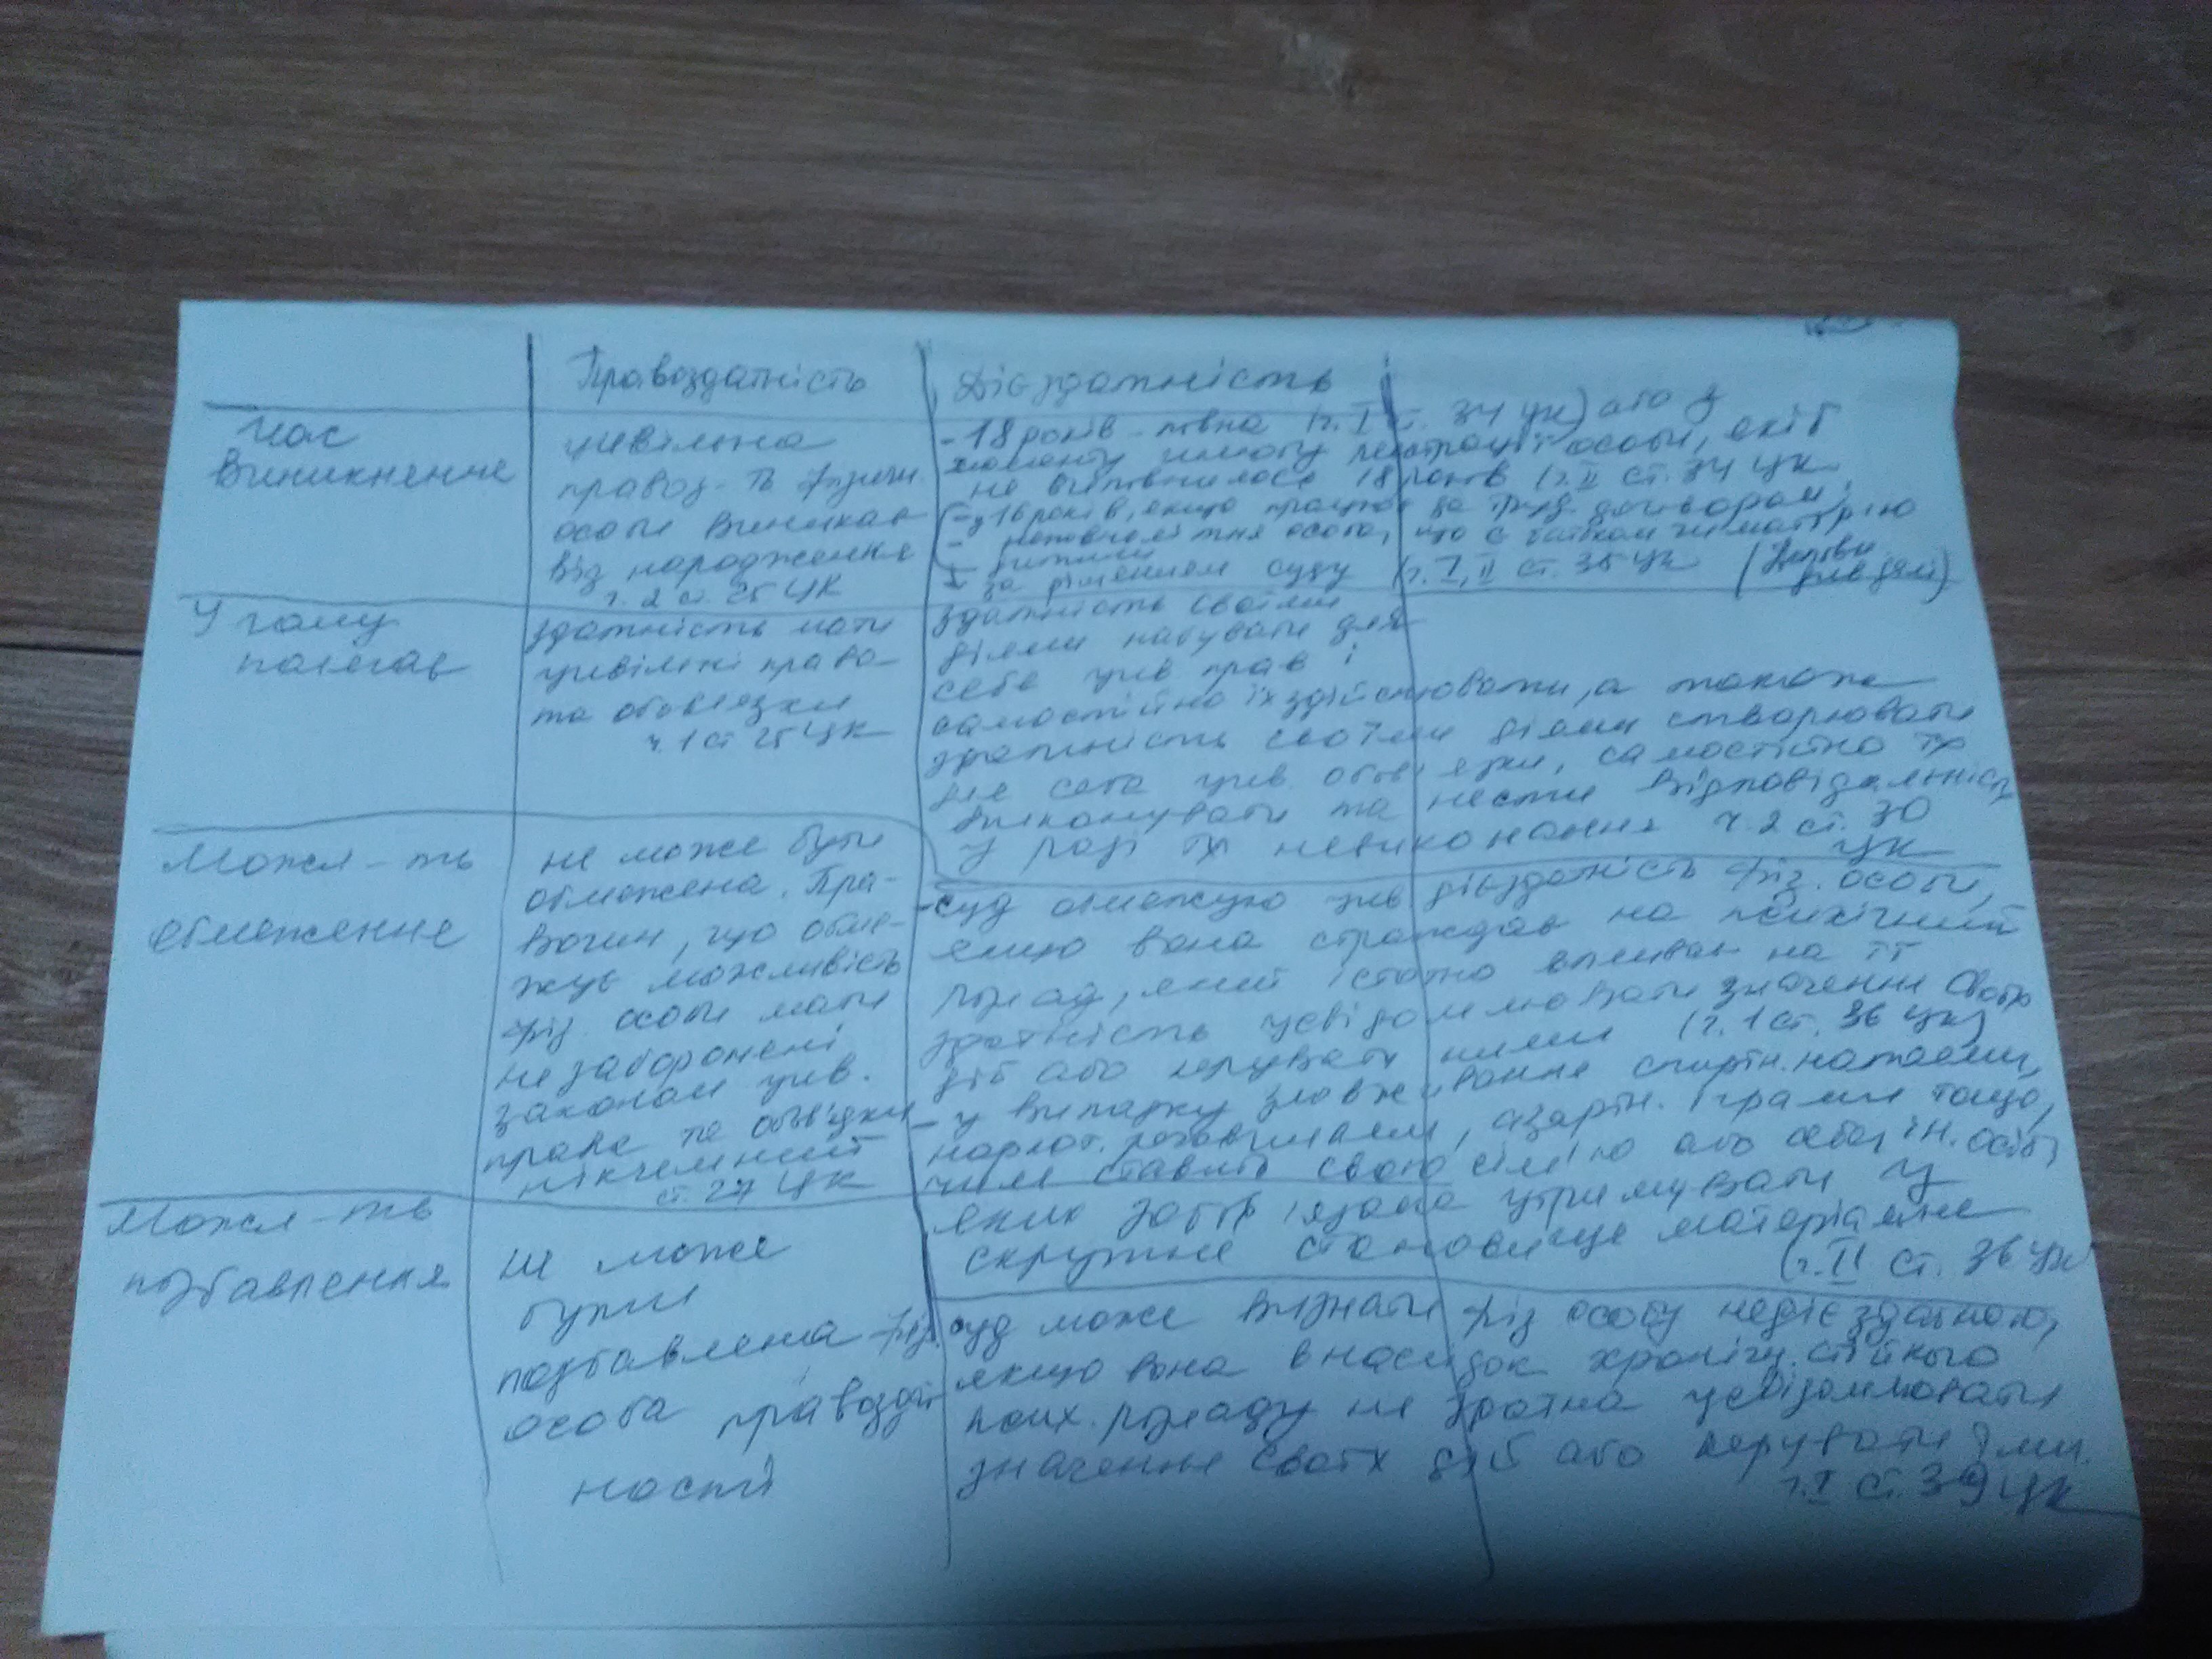 Правоздатність
Дієздатність
Час
виникнення
цивільна
правоз-ть фізичн.
особи виникає
від народження
ч. 2 ст. 25 ЦК
- 18 років - повна (ч. I ст. 34 ЦК) або з
моменту шлюбу реєстрації особи, якій
не виповнилося 18 років (ч. II ст. 34 ЦК
- з 16 років, якщо працює за труд. договором,
- неповнолітня особа, що є батьком чи матір'ю
дитини
за рішенням суду (ч. I, II ст. 35 ЦК
У чому
полягає
здатність мати
цивільні права
та обов'язки
ч. 1 ст 25 ЦК
здатність своїми
діями набувати для
себе цив прав і
самостійно їх здійснювати, а також
здатність своїми діями створювати
для себе цив. обов'язки, самостійно їх
виконувати та нести відповідальність
у разі їх невиконання ч. 2 ст. 30
ЦК
Можл-ть
обмеження
не може бути
обмежена. Пра-
вочин, що обме-
жує можливість
фіз. особи мати
не заборонені
законом цив.
права та обов'язки
нікчемний
ст. 27 ЦК
- суд обмежує цив дієздатність фіз. особи,
якщо вона страждає на психічний
розлад, який істотно впливає на її
здатність усвідомлювати значення своїх
дій або керувати ними (ч. 1 ст. 36 ЦК)
- у випадку зловживання спиртн. напоями,
наркот. речовинами, азартн. іграми тощо,
чим ставить свою сім'ю або себе, ін. осіб,
яких зобов'язана утримувати у
скрутне становище матеріальне
(ч. II ст. 36 ЦК
Можл-ть
позбавлення
не може
бути
позбавлена фіз.
особа правозда
ності
суд може визнати фіз особу недієздатною,
якщо вона внаслідок хронічн. стійкого
псих. розладу не здатна усвідомлювати
значення своїх дій або керувати ними.
ч. I ст. 39 ЦК